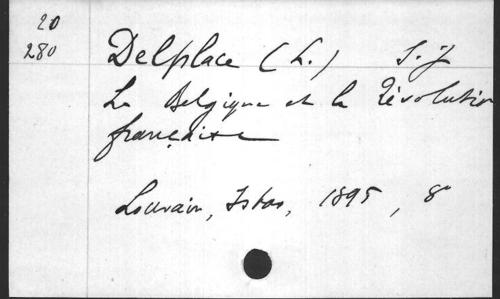 20
280
Delplace (L.) S.J
La Belgique et la Révolution
française
Louvain, Istas, 1895, 8°